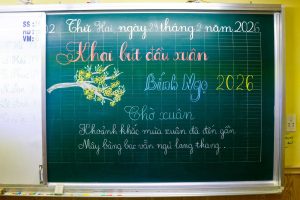 SS:
VM:
Thứ Hai ngày 23 tháng 2 năm 2026
Khai bút đầu xuân
Bính Ngọ 2026
Chờ xuân
Khoảnh khắc mùa xuân đã đến gần
Mây bồng bạc vẫn ngủ lang thang .